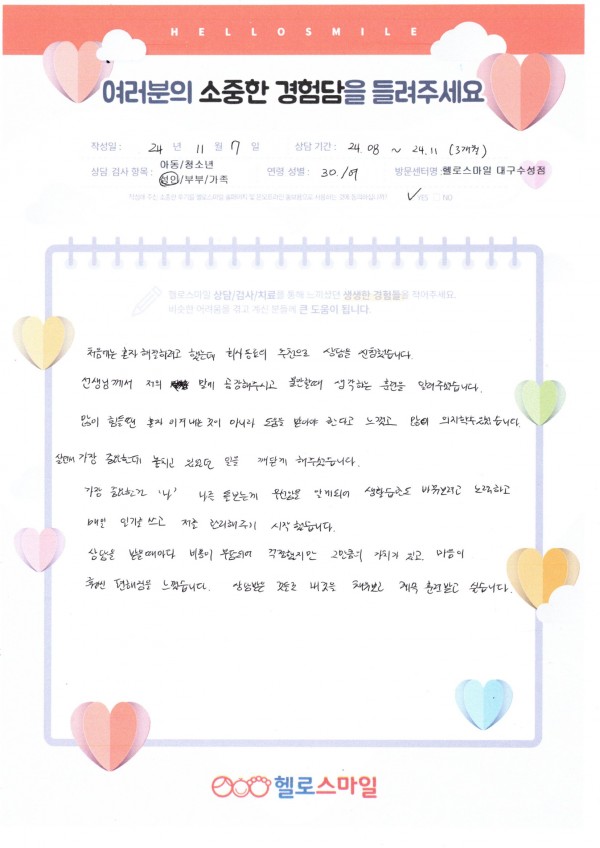 HELLOSMILE
여러분의 소중한 경험담을 들려주세요
작성일 : 24 년 11 월 7 일 상담 기간 : 24.08 ~ 24.11 (3개월)
상담 검사 항목 : 아동/청소년 성인/부부/가족 연령 성별 : 30./여 방문센터명 : 헬로스마일 대구수성점
YES NO
헬로스마일 상담/검사/치료를 통해 느끼셨던 생생한 경험들을 적어주세요.
비슷한 어려움을 겪고 계신 분들께 큰 도움이 됩니다.
처음에는 혼자 해결하려고 했는데 회사동료의 추천으로 상담을 신청했습니다.
선생님께서 저의 맞게 공감해주시고 불안할때 생각하는 훈련을 알려주셨습니다.
많이 힘들땐 혼자 이겨내는것이 아니라 도움을 받아야 한다고 느꼈고 많이 의지할수있었습니다.
살면서 가장 중요한데 놓치고 있었던 일을 깨닫게 해주셨습니다.
가장 중요한건 '나' 나를 돌보는게 우선임을 알게되어 생활습관도 바꿔보려고 노력하고
매일 일기쓰고 저를 관리해주기 시작했습니다.
상담을 받을때마다 비용이 부담되어 걱정했지만 그만큼의 가치가 있고 마음이
훨씬 편해짐을 느꼈습니다. 상담받은 것들로 내것을 채우고 계속 훈련받고 싶습니다.
헬로스마일